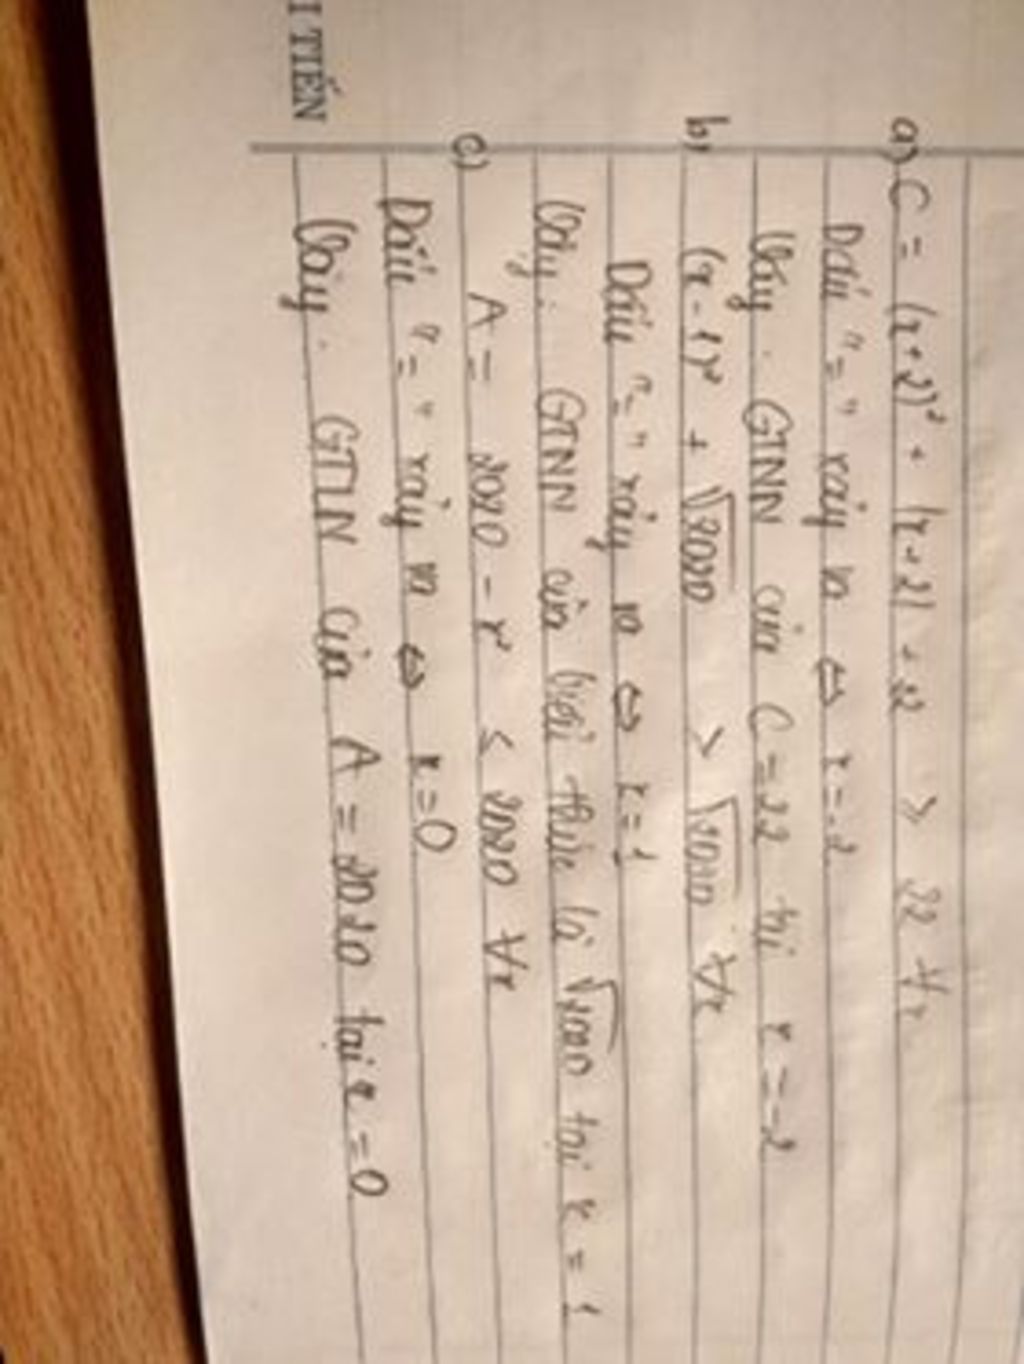 a) C = (x+2)² + |x+2| + 22 ≥ 22 ∀x
Dấu "=" xảy ra ⇔ x = -2
Vậy: GTNN của C = 22 tại x = -2
b) (x-1)² + √2020 ≥ √2020 ∀x
Dấu "=" xảy ra ⇔ x = 1
Vậy: GTNN của biểu thức là √2020 tại x = 1
c) A = 2020 - x² ≤ 2020 ∀x
Dấu "=" xảy ra ⇔ x = 0
Vậy: GTLN của A = 2020 tại x = 0
I TIẾN